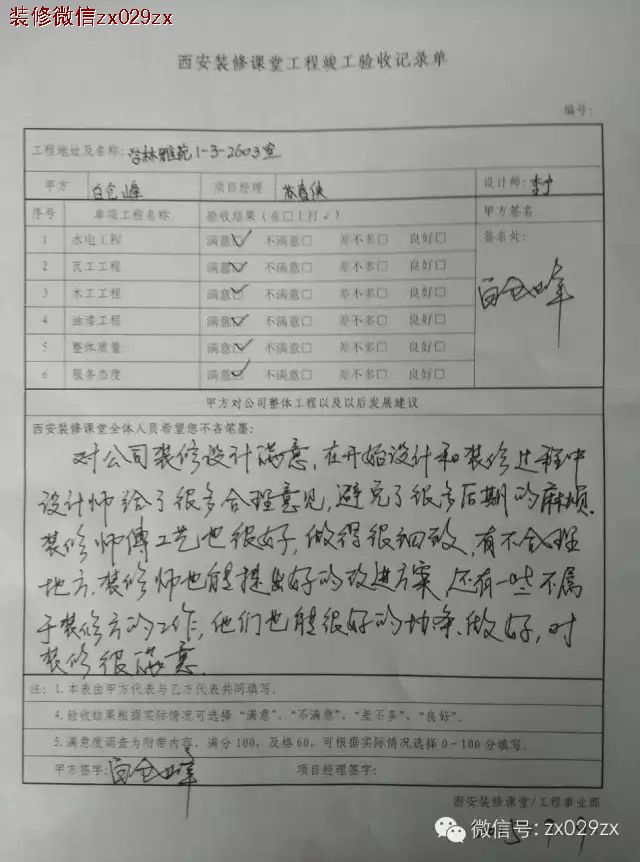 装修微信zx029zx
西安装修课堂工程竣工验收记录单
编号:
工程地址及名称: 学林雅苑1-3-2603室
甲方 项目经理 设计师:
序号 单项工程名称 验收结果（在□上打√） 甲方签名
1 水电工程 满意☑ 不满意□ 差不多□ 良好□ 签名处:
2 瓦工工程 满意☑ 不满意□ 差不多□ 良好□
3 木工工程 满意☑ 不满意□ 差不多□ 良好□
4 油漆工程 满意☑ 不满意□ 差不多□ 良好□
5 整体质量 满意☑ 不满意□ 差不多□ 良好□
6 服务态度 满意☑ 不满意□ 差不多□ 良好□
甲方对公司整体工程以及以后发展建议
西安装修课堂全体人员希望您不吝笔墨:
对公司装修设计满意,在开始设计和装修过程中
设计师给了很多合理意见,避免了很多后期的麻烦.
装修师傅工艺也很好,做得很细致,有不合理
地方,装修师也能提出好的改进方案,还有一些不属
于装修方的工作,他们也能很好的协条.做好,对
装修很满意.
注: 1.本表由甲方代表与乙方代表共同填写.
4.验收结果根据实际情况可选择“满意”、“不满意”、“差不多”、“良好”.
5.满意度调查为附带内容,满分100,及格60,可根据实际情况选择0-100分填写.
甲方签字: 项目经理签字:
西安装修课堂/工程事业部
微信号: zx029zx